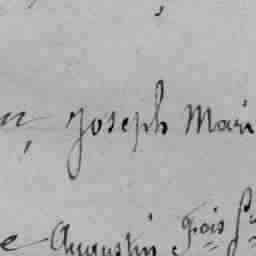 n, Joseph Mari
e Augustin fois